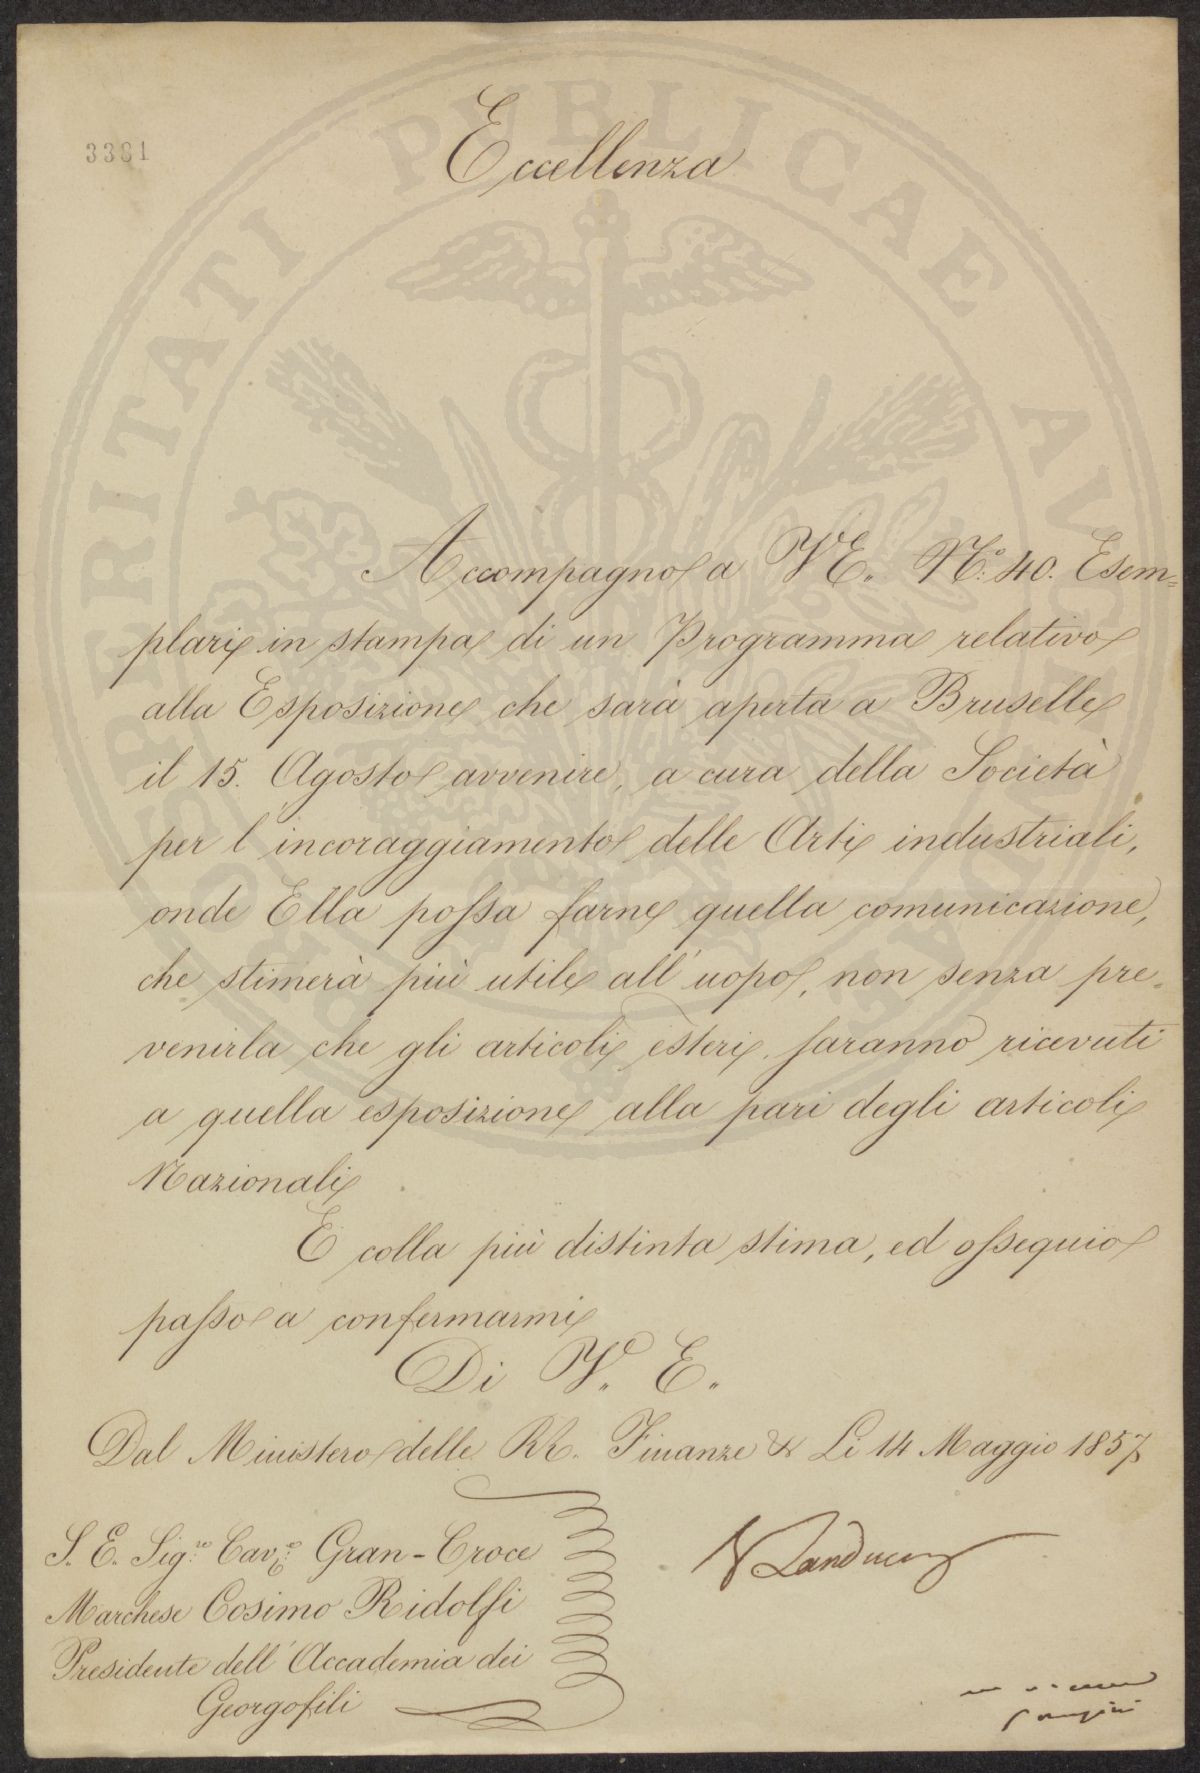 3361
Eccellenza
Accompagno a VE. N.° 40. Esem=
plari in stampa di un Programma relativo
alla Esposizione che sarà aperta a Bruselle
il 15. Agosto avvenire, a cura della Società
per l'incoraggiamento delle Arti industriali,
onde Ella possa farne quella comunicazione,
che stimerà più utile all'uopo, non senza pre=
venirla che gli articoli esteri, saranno ricevuti
a quella esposizione alla pari degli articoli
Nazionali.
E colla più distinta stima, ed ossequio
passo a confermarmi
Di V. E.
Dal Ministero delle RR. Finanze & Li 14 Maggio 1857
S. E. Sig.re Cav.re Gran-Croce
Marchese Cosimo Ridolfi
Presidente dell'Accademia dei
Georgofili
Landucci
PROSPERITATI PUBLICAE AUGENDAE